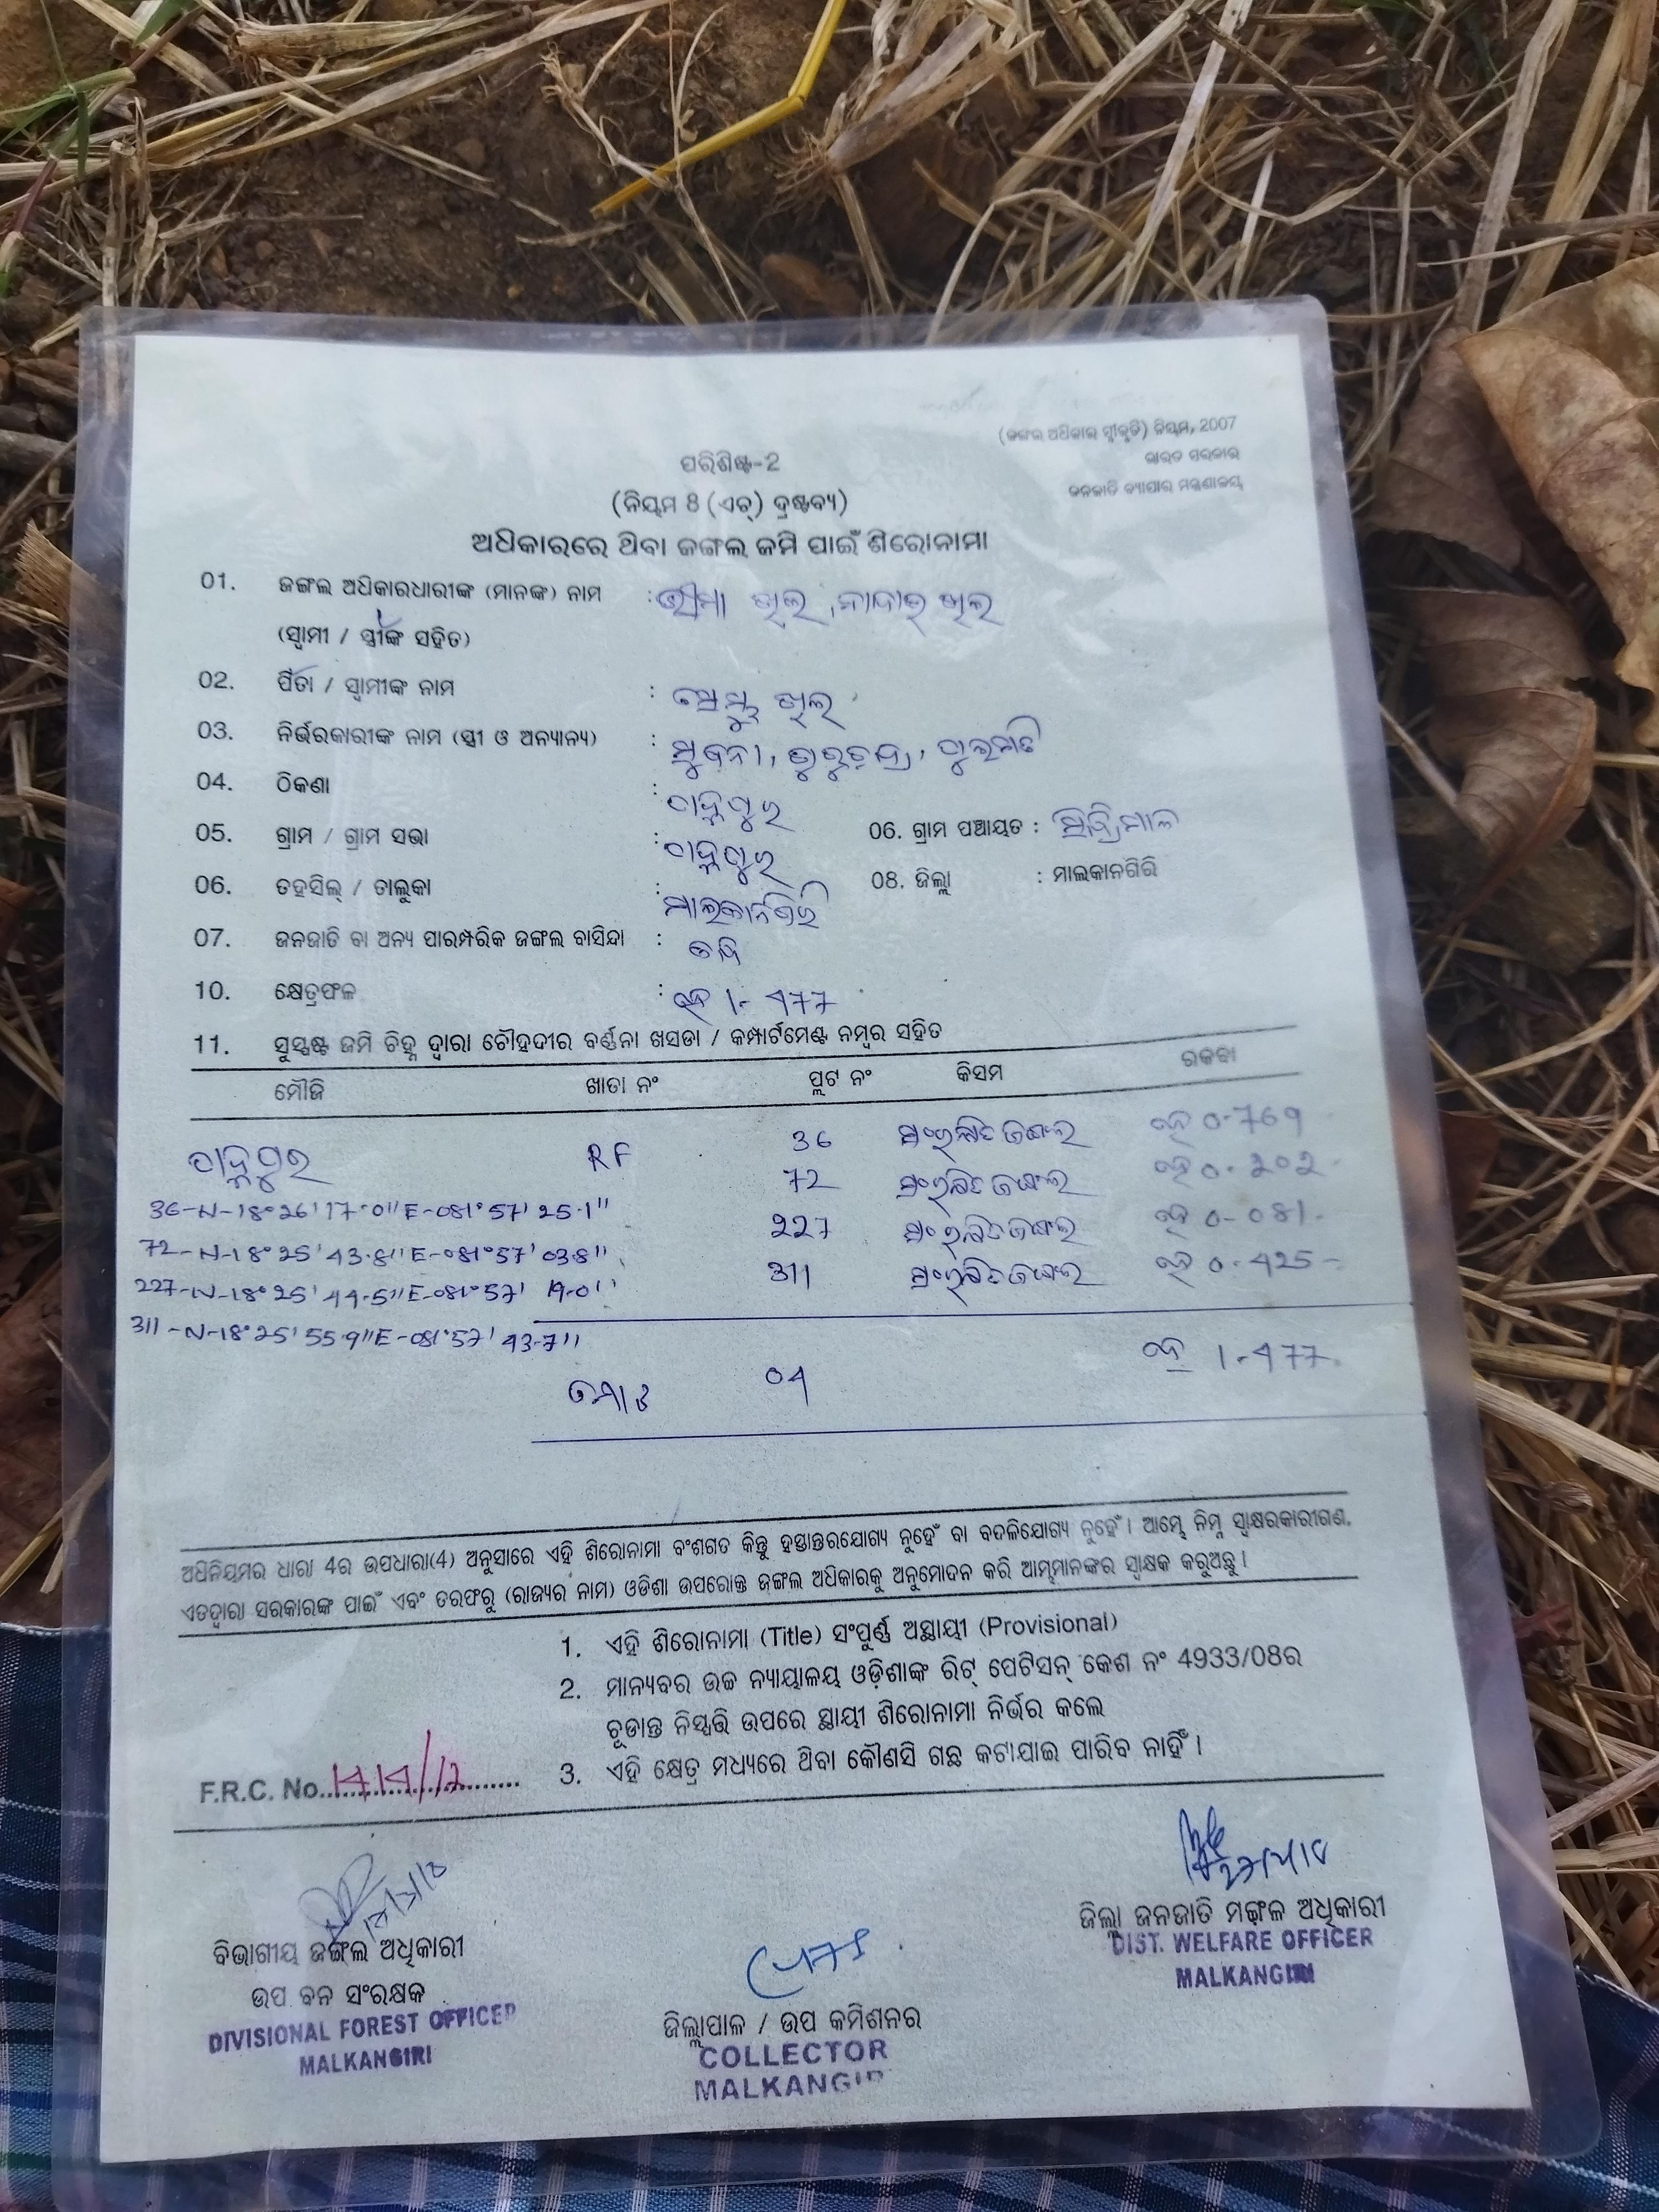 (ଜଙ୍ଗଲ ଅଧିକାର ସ୍ୱୀକୃତି) ନିୟମ, 2007
ଭାରତ ସରକାର
ଜନଜାତି ବ୍ୟାପାର ମନ୍ତ୍ରଣାଳୟ
ପରିଶିଷ୍ଟ-2
(ନିୟମ 8 (ଏଚ୍) ଦ୍ରଷ୍ଟବ୍ୟ)
ଅଧିକାରରେ ଥିବା ଜଙ୍ଗଲ ଜମି ପାଇଁ ଶିରୋନାମା
01. ଜଙ୍ଗଲ ଅଧିକାରଧାରୀଙ୍କ (ମାନଙ୍କ) ନାମ :
(ସ୍ୱାମୀ / ସ୍ତ୍ରୀଙ୍କ ସହିତ)
02. ପିତା / ସ୍ୱାମୀଙ୍କ ନାମ :
03. ନିର୍ଭରକାରୀଙ୍କ ନାମ (ସ୍ତ୍ରୀ ଓ ଅନ୍ୟାନ୍ୟ) :
04. ଠିକଣା :
05. ଗ୍ରାମ / ଗ୍ରାମ ସଭା : 06. ଗ୍ରାମ ପଞ୍ଚାୟତ :
06. ତହସିଲ୍ / ତାଲୁକା : ମାଲକାନଗିରି 08. ଜିଲ୍ଲା : ମାଲକାନଗିରି
07. ଜନଜାତି ବା ଅନ୍ୟ ପାରମ୍ପରିକ ଜଙ୍ଗଲ ବାସିନ୍ଦା :
10. କ୍ଷେତ୍ରଫଳ : ହେ 1.477
11. ସୁସ୍ପଷ୍ଟ ଜମି ଚିହ୍ନ ଦ୍ୱାରା ଚୌହଦୀର ବର୍ଣ୍ଣନା ଖସଡା / କମ୍ପାର୍ଟମେଣ୍ଟ ନମ୍ବର ସହିତ
ମୌଜି ଖାତା ନଂ ପ୍ଲଟ ନଂ କିସମ ରକବା
RF 36 ସଂରକ୍ଷିତ ଜଙ୍ଗଲ ହେ 0.769
72 ସଂରକ୍ଷିତ ଜଙ୍ଗଲ ହେ 0.202
36-N-18°26'17.0"E-081°57'25.1"
227 ସଂରକ୍ଷିତ ଜଙ୍ଗଲ ହେ 0.081
72-N-18°25'43.8"E-081°57'03.8"
311 ସଂରକ୍ଷିତ ଜଙ୍ଗଲ ହେ 0.425
227-N-18°25'44.5"E-081°57'19.0"
311-N-18°25'55.9"E-081°57'43.7"
ମୋଟ 04 ହେ 1.477
ଅଧିନିୟମର ଧାରା 4ର ଉପଧାରା(4) ଅନୁସାରେ ଏହି ଶିରୋନାମା ବଂଶଗତ କିନ୍ତୁ ହସ୍ତାନ୍ତରଯୋଗ୍ୟ ନୁହେଁ ବା ବଦଳିଯୋଗ୍ୟ ନୁହେଁ। ଆମ୍ଭେ ନିମ୍ନ ସ୍ୱାକ୍ଷରକାରୀଗଣ,
ଏତଦ୍ୱାରା ସରକାରଙ୍କ ପାଇଁ ଏବଂ ତରଫରୁ (ରାଜ୍ୟର ନାମ) ଓଡିଶା ଉପରୋକ୍ତ ଜଙ୍ଗଲ ଅଧିକାରକୁ ଅନୁମୋଦନ କରି ଆମ୍ଭମାନଙ୍କର ସ୍ୱାକ୍ଷକ କରୁଅଛୁ।
1. ଏହି ଶିରୋନାମା (Title) ସଂପୁର୍ଣ୍ଣ ଅସ୍ଥାୟୀ (Provisional)
2. ମାନ୍ୟବର ଉଚ୍ଚ ନ୍ୟାୟାଳୟ ଓଡ଼ିଶାଙ୍କ ରିଟ୍ ପେଟିସନ୍ କେଶ ନଂ 4933/08ର
ଚୂଡାନ୍ତ ନିସ୍ପତ୍ତି ଉପରେ ସ୍ଥାୟୀ ଶିରୋନାମା ନିର୍ଭର କଲେ
3. ଏହି କ୍ଷେତ୍ର ମଧ୍ୟରେ ଥିବା କୌଣସି ଗଛ କଟାଯାଇ ପାରିବ ନାହିଁ।
F.R.C. No.
ବିଭାଗୀୟ ଜଙ୍ଗଲ ଅଧିକାରୀ
ଉପ ବନ ସଂରକ୍ଷକ
DIVISIONAL FOREST OFFICER
MALKANGIRI
ଜିଲ୍ଲାପାଳ / ଉପ କମିଶନର
COLLECTOR
MALKANGIRI
ଜିଲ୍ଲା ଜନଜାତି ମଙ୍ଗଳ ଅଧିକାରୀ
DIST. WELFARE OFFICER
MALKANGIRI